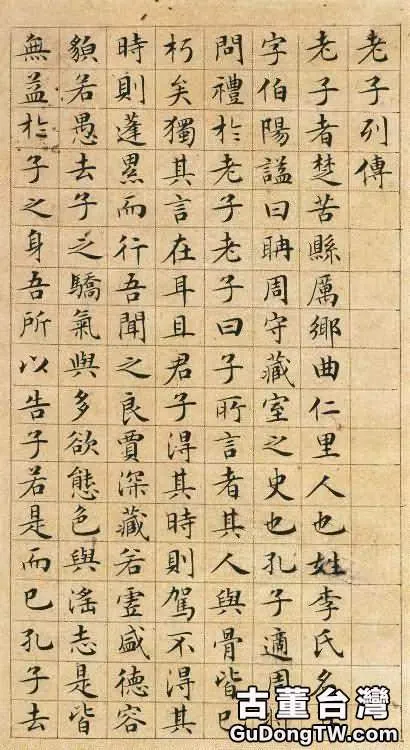 老子列傳
老子者楚苦縣厲鄉曲仁里人也姓李氏名
字伯陽諡曰聃周守藏室之史也孔子適周
問禮於老子老子曰子所言者其人與骨皆已
朽矣獨其言在耳且君子得其時則駕不得其
時則蓬累而行吾聞之良賈深藏若虛盛德容
貌若愚去子之驕氣與多欲態色與淫志是皆
無益於子之身吾所以告子若是而已孔子去
古董台灣
GuDongTW.com